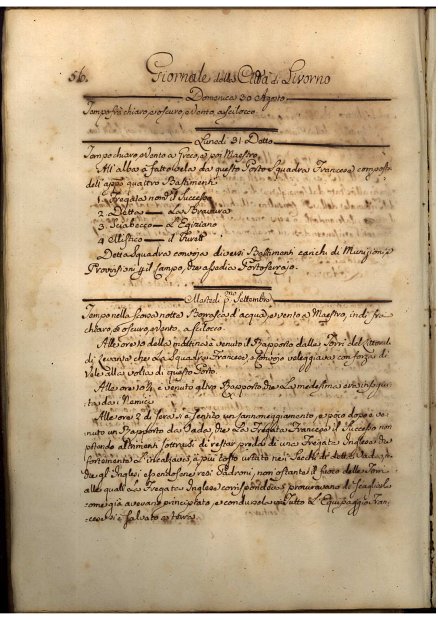 56. Giornale della Città di Livorno
Domenica 30 Agosto
Tempo frà chiaro, e oscuro, e Vento, a scilocco
Lunedì 31 Detto
Tempo chiaro, e Vento a Greco, e poi Maestro.
All'alba à fatto Vela da questo Porto Squadra Francese composta
dell'appo quattro Bastimenti
1. Fregata nom.a il Successo
2. Detta — La Bravura
3. Sciabecco — L'Egiziano
4. Mistico — il Furett
Detta Squadra convoja diversi Bastimenti carichi di Munizioni, e
Provisioni p il Campo, che assedia Portoferrajo.
Martedì p.mo Settembre
Tempo nella scorsa notte Borrasca d'acqua, e vento a Maestro, indi frà
chiaro, e oscuro, e vento, a scilocco.
Alle ore 10 della mattina è venuto il Rapporto dalle Torri del Littorale
di Levante che La Squadra Francese, e Convojo veleggiava con forza di
Vele alla volta di questo Porto.
Alle ore 10¾ è venuto altro Rapporto che La medesima era inseguita
da i Nemici.
Alle ore 2 di sera si è sentito un cannoneggiamento, e poco dopo è ve-
nuto un Rapporto da Vada, che La Fregata Francese il Successo non
potendo altrimenti sottrarsi di restar preda di una Fregata Inglese che
fortemente L'incalzava, à più tosto urtato nei Secchi di detta Vada, di
che gl'Inglesi essendosene resi Padroni, non ostante il fuoco delle Torri
alle quali La Fregata Inglese corrispondeva, procuravano di scagliarla
come già avevano principiato, e condursela. Tutto L'Equipaggio Fran-
cese si è salvato a terra.